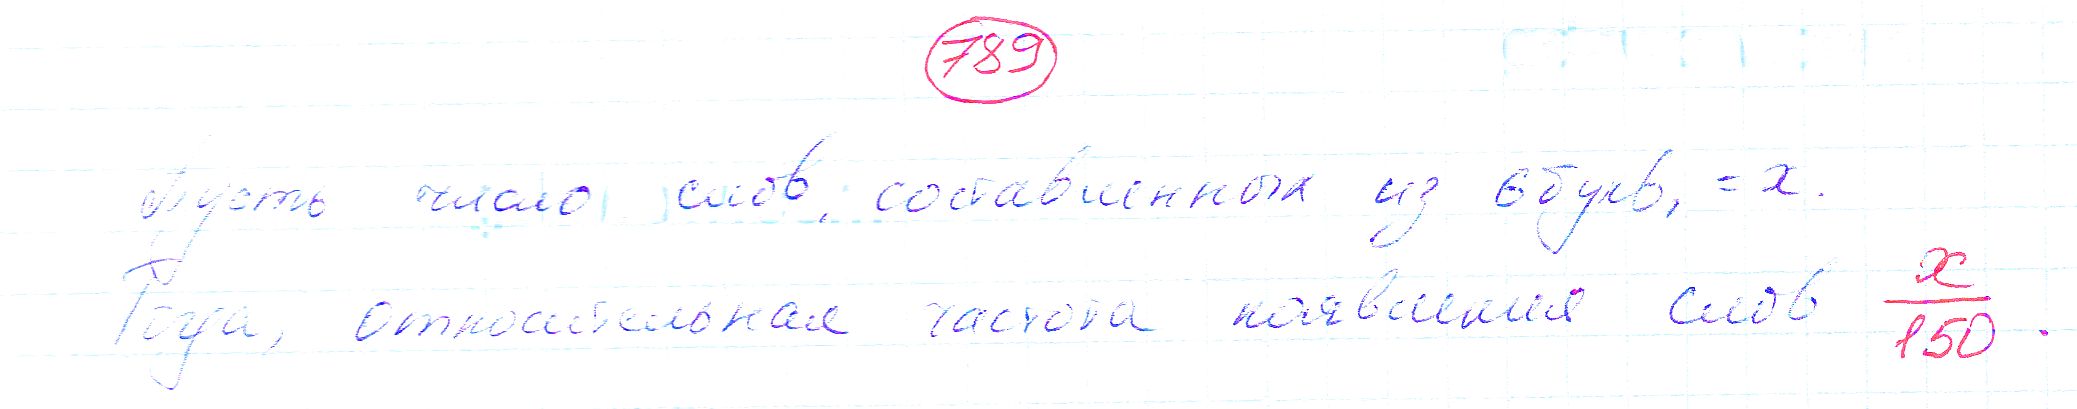 789
Пусть число слов, составленных из 6 букв, = x.
Тогда, относительная частота появления слов x/150.